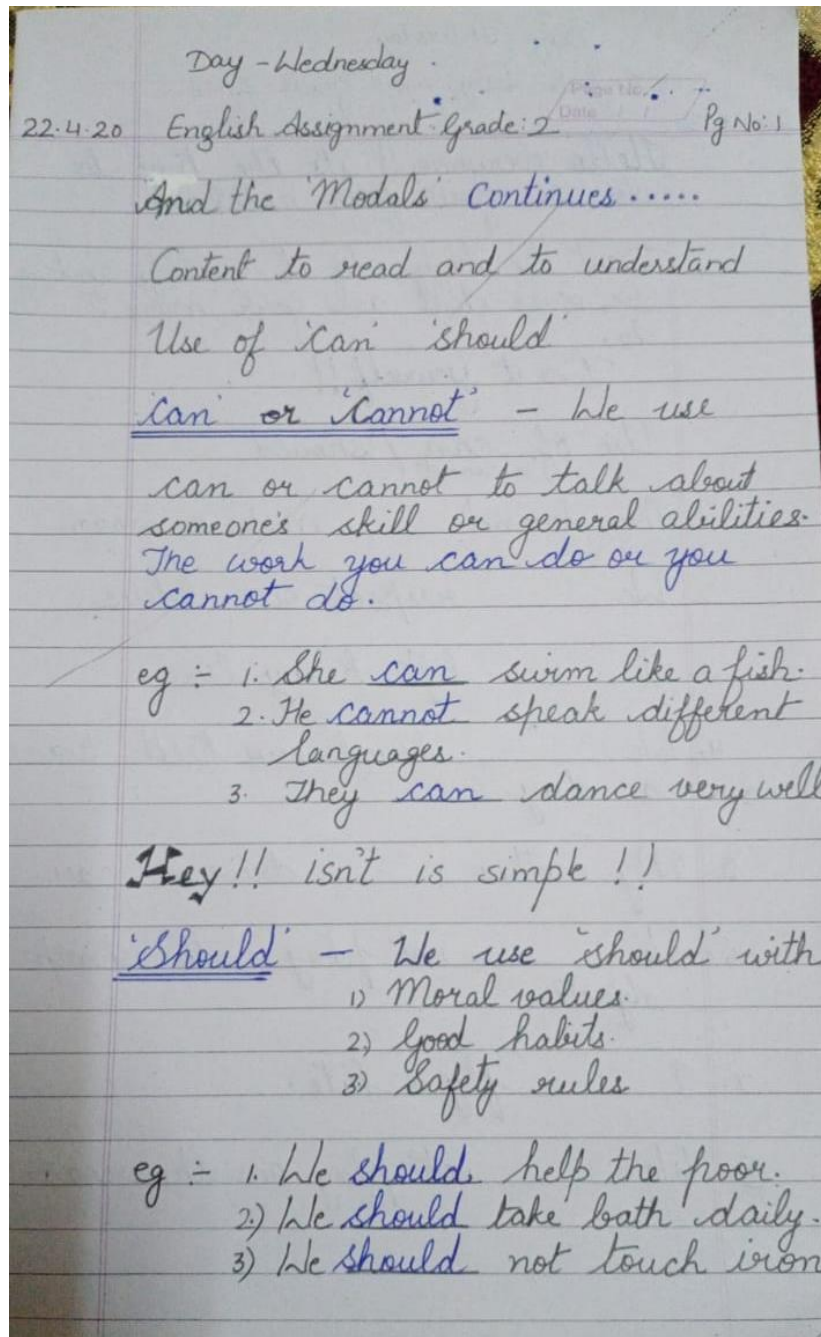 Day - Wednesday.
Page No.
Date
22.4.20 English Assignment Grade: 2 Pg No: 1
And the 'Modals' Continues.....
Content to read and to understand
Use of 'can' 'should'
'can' or 'cannot' - We use
can or cannot to talk about
someone's skill or general abilities.
The work you can do or you
cannot do.
eg :- 1. She can swim like a fish.
2. He cannot speak different
languages.
3. They can dance very well
Hey!! isn't is simple !!
'Should' - We use 'should' with
1) Moral values.
2) Good habits.
3) Safety rules
eg :- 1. We should help the poor.
2.) We should take bath daily.
3) We should not touch iron